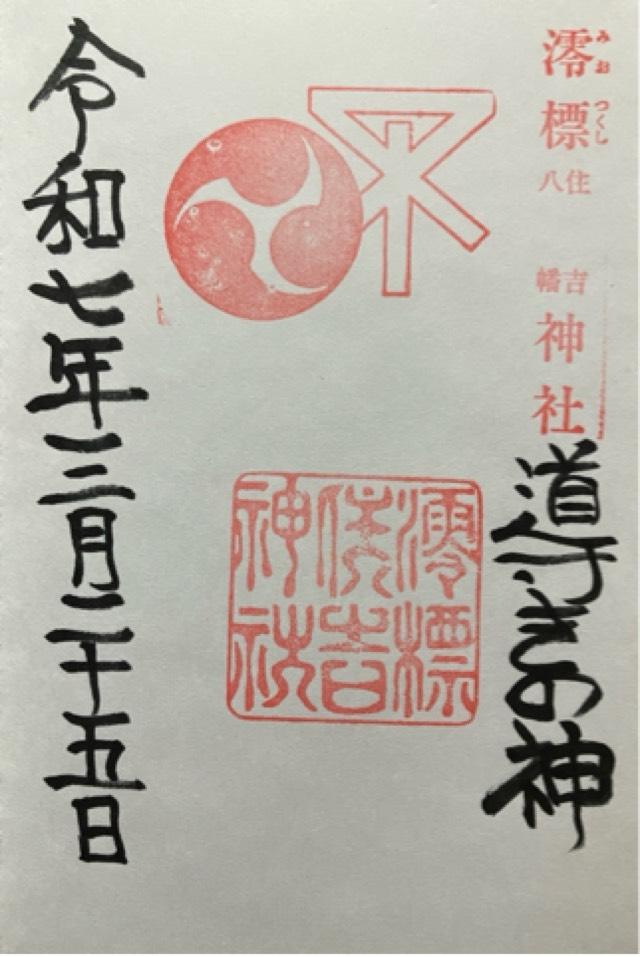 澪標住吉八幡神社
みおつくし
道きの神
澪標
住吉
神社
令和七年三月二十五日